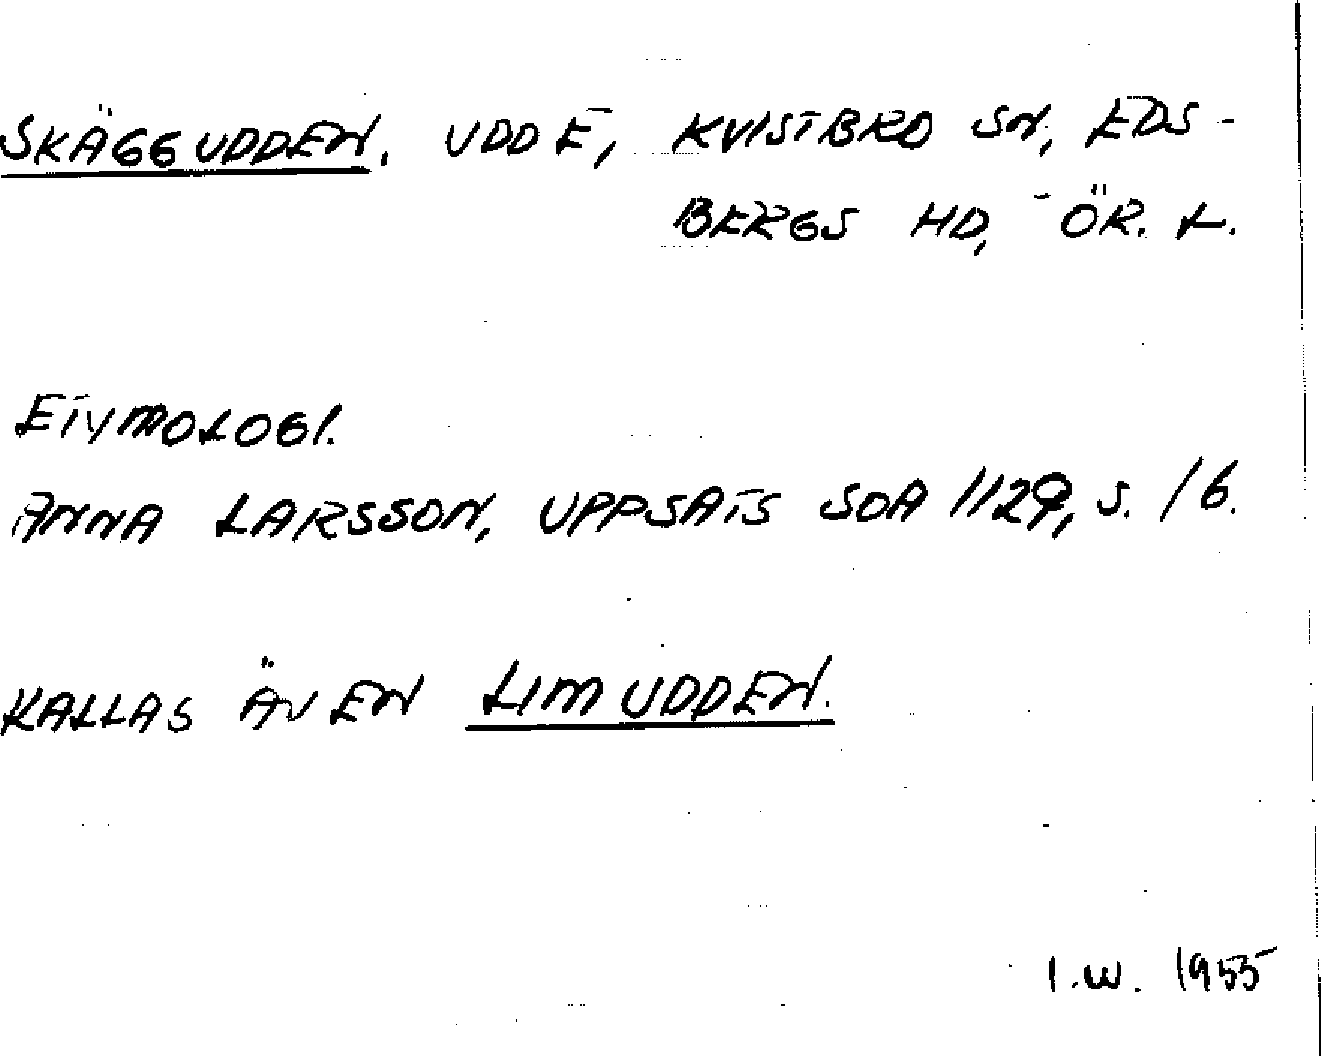 SKÄGGUDDEN. UDDE, KVISTBRO SN, EDS-
BERGS HD, ÖR. L.
ETYMOLOGI.
ANNA LARSSON, UPPSATS SOA 1129, S. 16.
KALLAS ÄVEN LIMUDDEN.
I.W. 1955